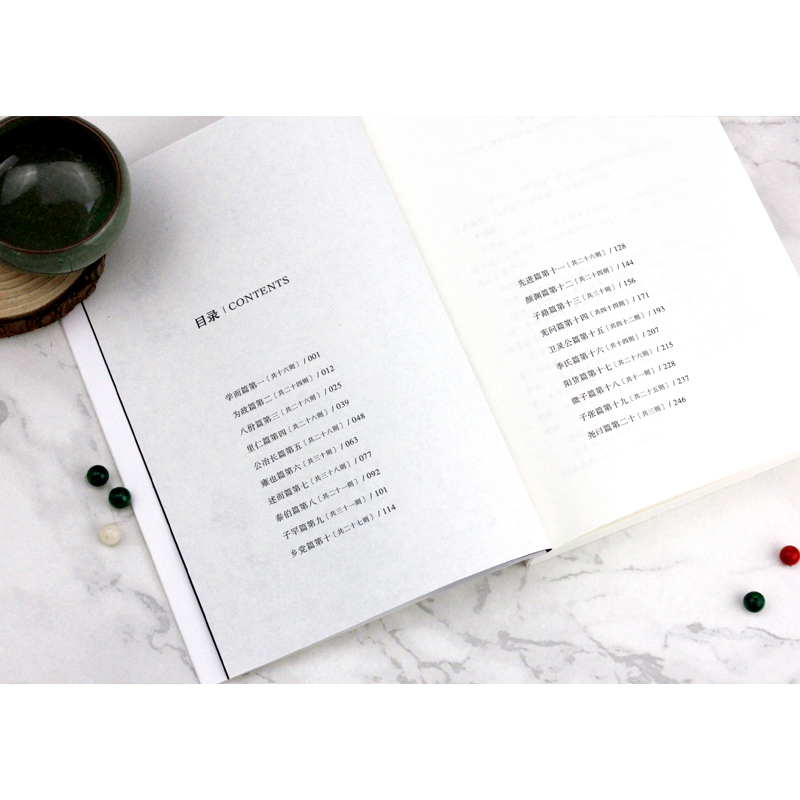 目录 | CONTENTS
学而篇第一（共十六则）/ 001
为政篇第二（共二十四则）/ 012
八佾篇第三（共二十六则）/ 025
里仁篇第四（共二十六则）/ 039
公冶长篇第五（共二十八则）/ 048
雍也篇第六（共三十则）/ 063
述而篇第七（共三十八则）/ 077
泰伯篇第八（共二十一则）/ 092
子罕篇第九（共三十一则）/ 101
乡党篇第十（共二十七则）/ 114
先进篇第十一（共二十六则）/ 128
颜渊篇第十二（共二十四则）/ 144
子路篇第十三（共三十则）/ 156
宪问篇第十四（共四十四则）/ 171
卫灵公篇第十五（共四十二则）/ 193
季氏篇第十六（共十四则）/ 207
阳货篇第十七（共二十六则）/ 215
微子篇第十八（共十一则）/ 228
子张篇第十九（共二十五则）/ 237
尧曰篇第二十（共三则）/ 246